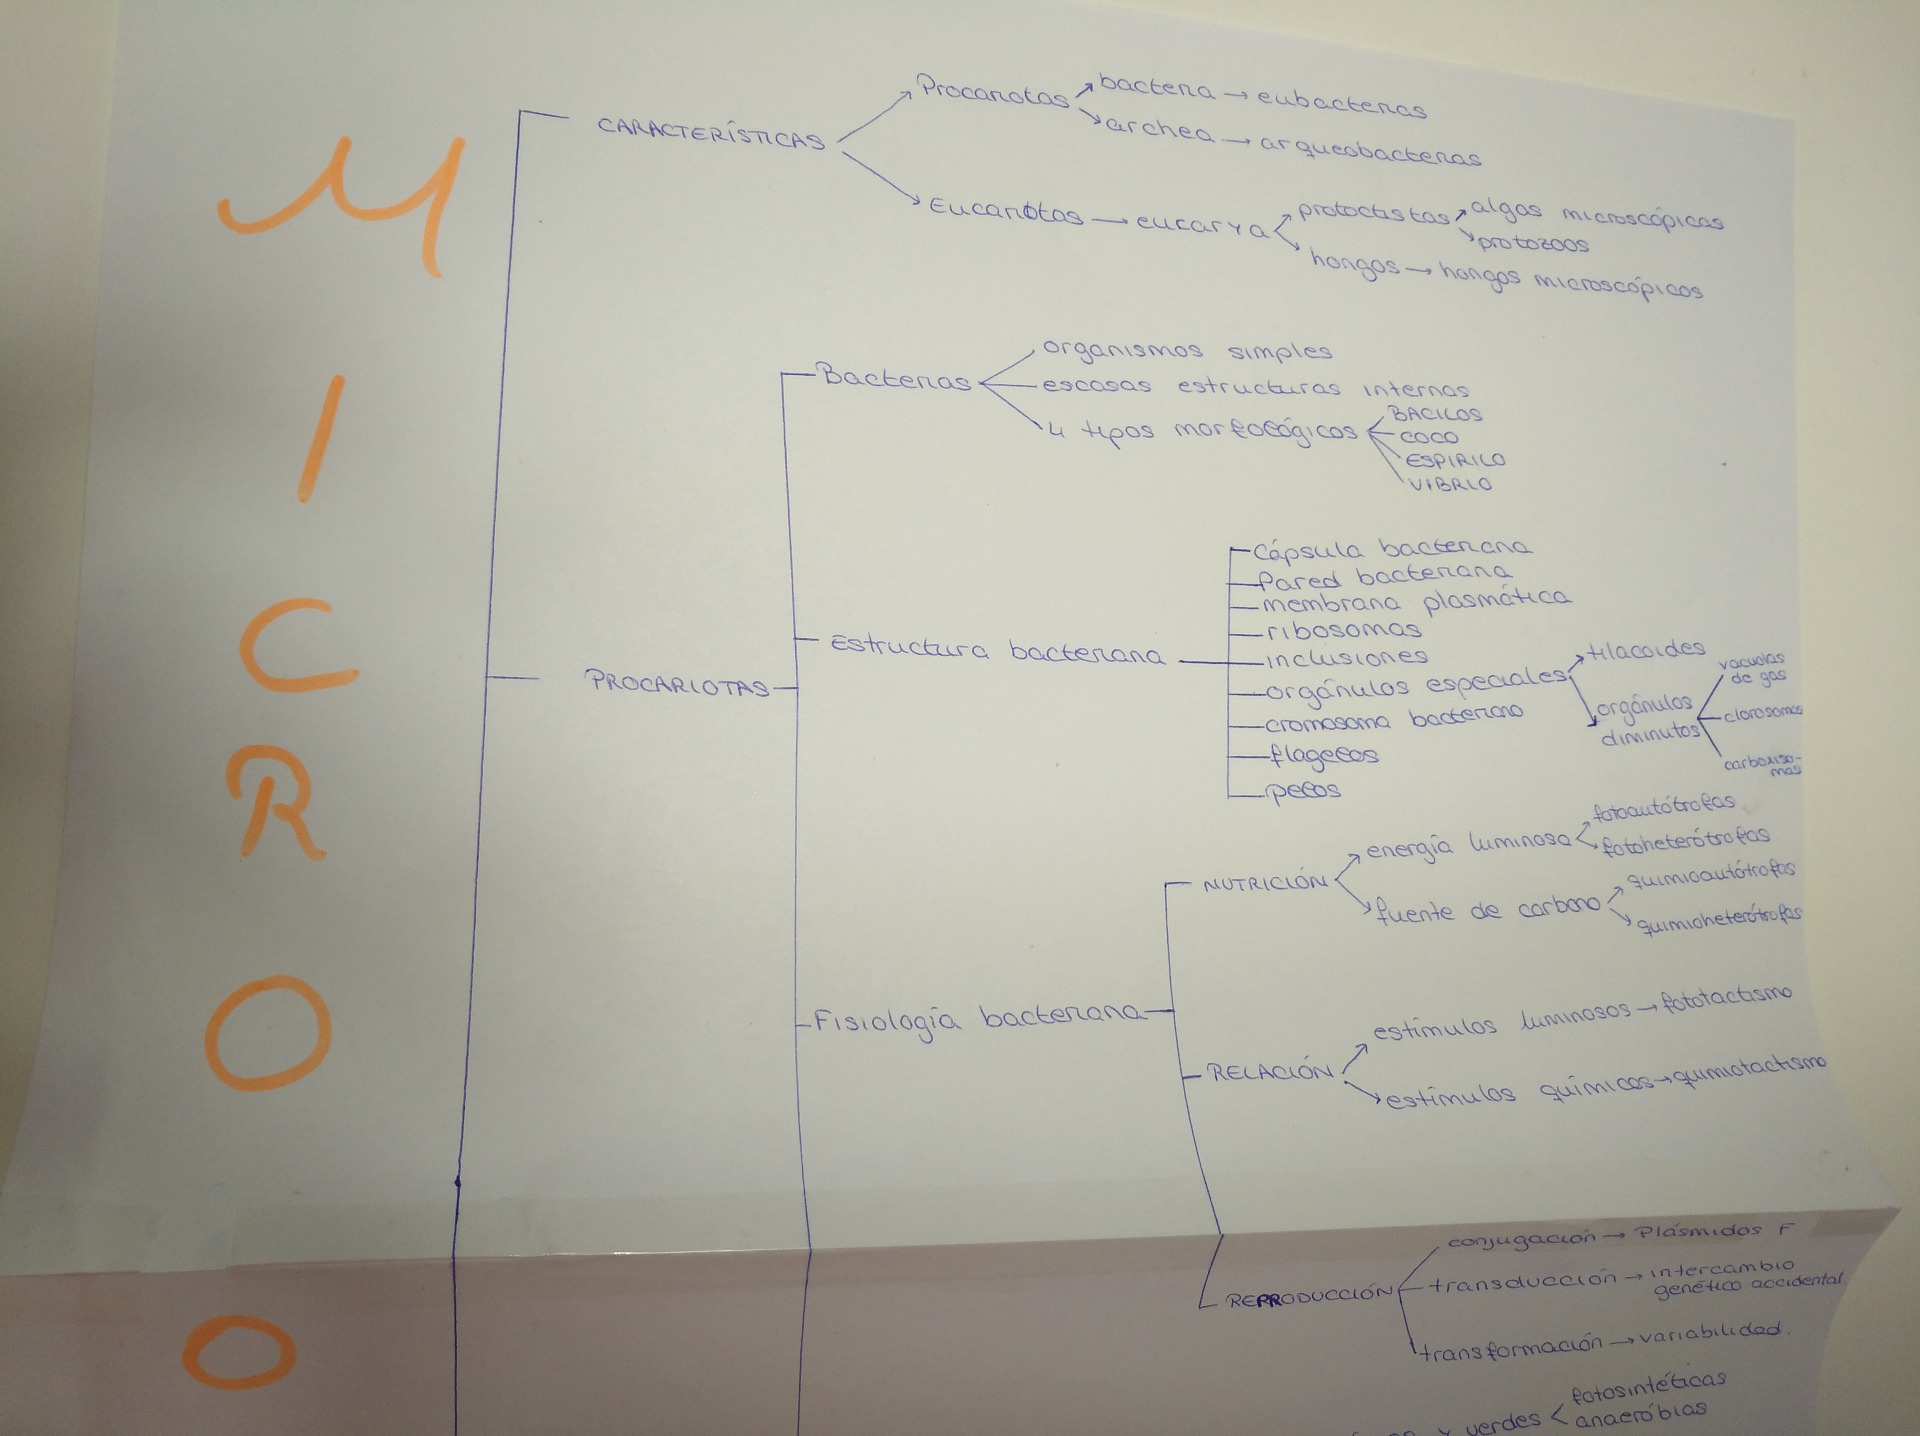 M
I
C
R
O
O
CARACTERÍSTICAS
Procariotas
bacteria → eubacterias
archea → arqueobacterias
Eucariotas → eucarya
protoctistas
algas microscópicas
protozoos
hongos → hongos microscópicos
PROCARIOTAS
Bacterias
organismos simples
escasas estructuras internas
4 tipos morfológicos
BACILOS
COCO
ESPIRILO
VIBRIO
Estructura bacteriana
Cápsula bacteriana
Pared bacteriana
membrana plasmática
ribosomas
inclusiones
orgánulos especiales
tilacoides
orgánulos
diminutos
vacuolas
de gas
clorosomas
carboxiso-
mas
cromosoma bacteriano
flagelos
pelos
Fisiología bacteriana
NUTRICIÓN
energía luminosa
fotoautótrofas
fotoheterótrofas
fuente de carbono
quimioautótrofas
quimioheterótrofas
RELACIÓN
estímulos luminosos → fototactismo
estímulos químicos → quimiotactismo
REPRODUCCIÓN
conjugación → Plásmidos F
transducción → intercambio
genético accidental
transformación → variabilidad.
y verdes <
fotosintéticas
anaeróbias